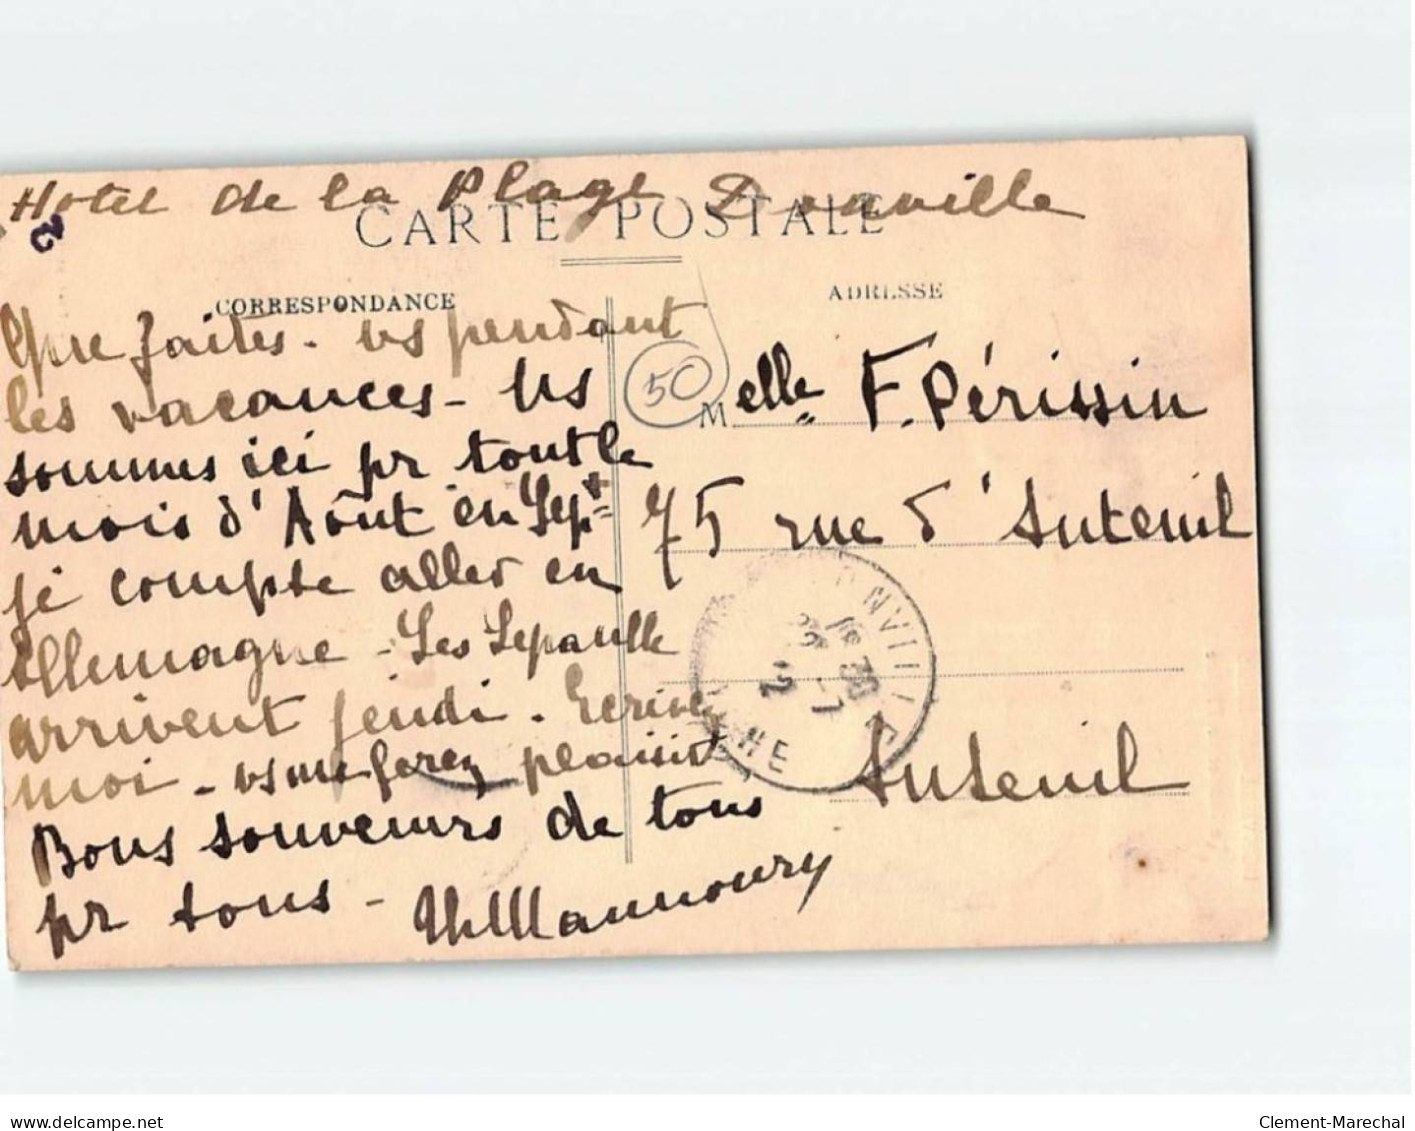 Hotel de la Plage Donville
CARTE POSTALE
CORRESPONDANCE
Que faites-vs pendant
les vacances - Ns
sommes ici pr tout le
mois d'Août en Sept
je compte aller en
Allemagne - Les Lepaulle
arrivent jeudi. Ecrivez
moi - vs me ferez plaisir
Bons souvenirs de tous
pr tous -
ADRESSE
50
Melle F. Périssin
75 rue d'Auteuil
Auteuil
delcampe.net
Clement-Marechal